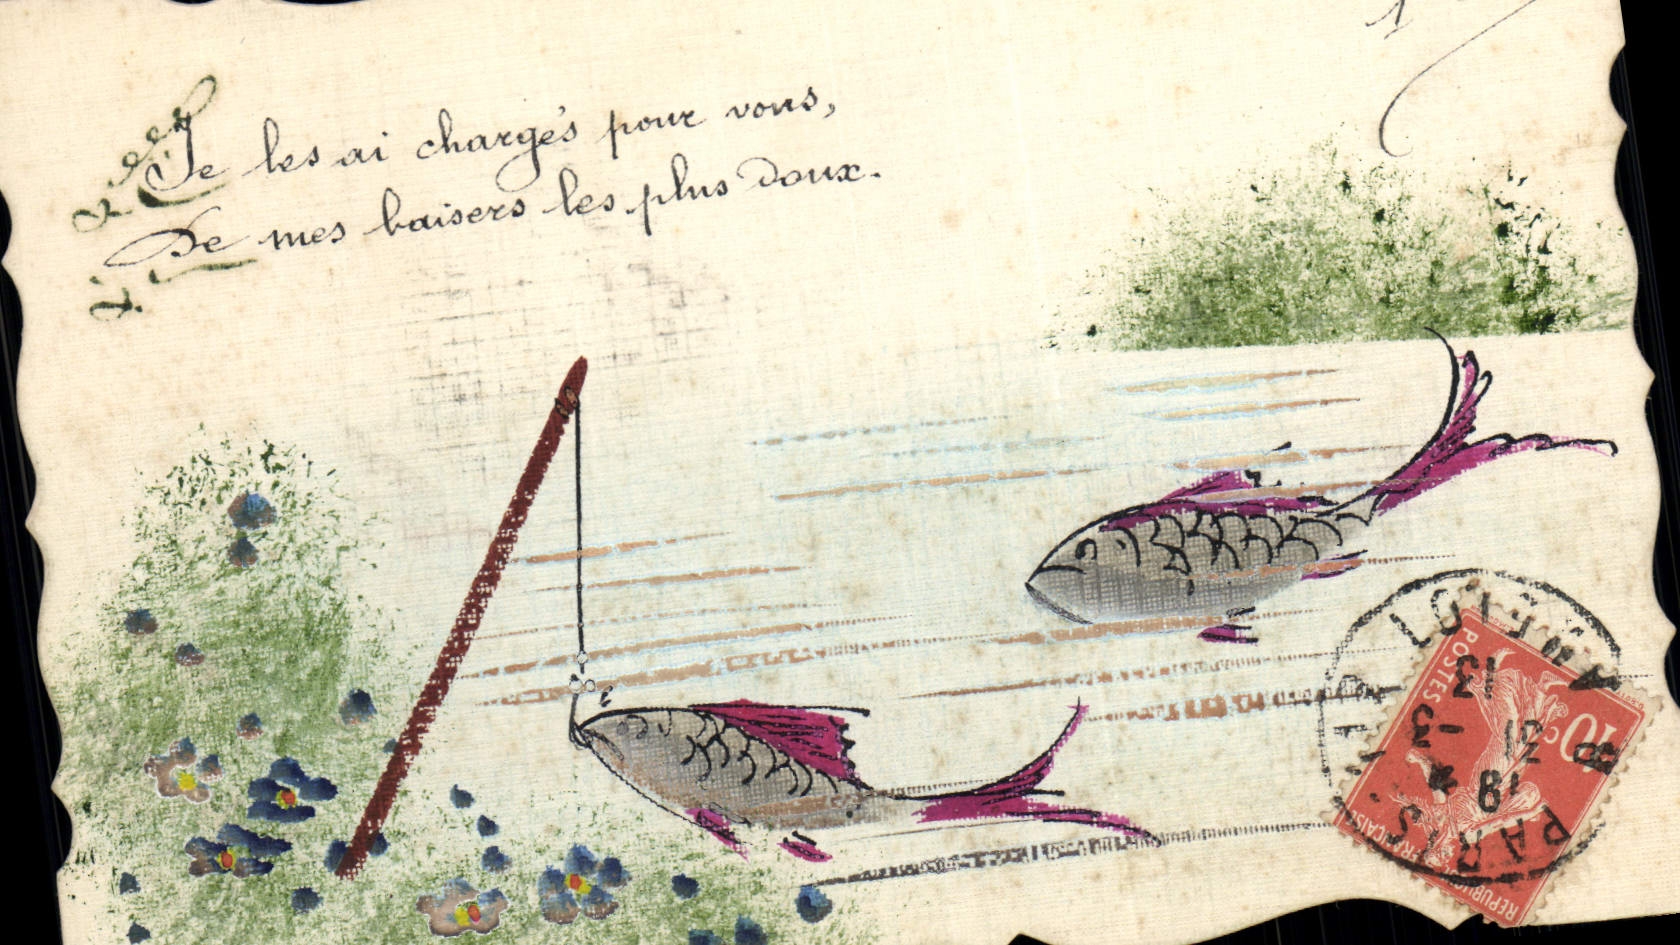 1
Je les ai chargés pour vous,
De mes baisers les plus doux.
POSTES
10c
RÉPUBLIQUE FRANÇAISE
PARIS
18
31 - 3
13